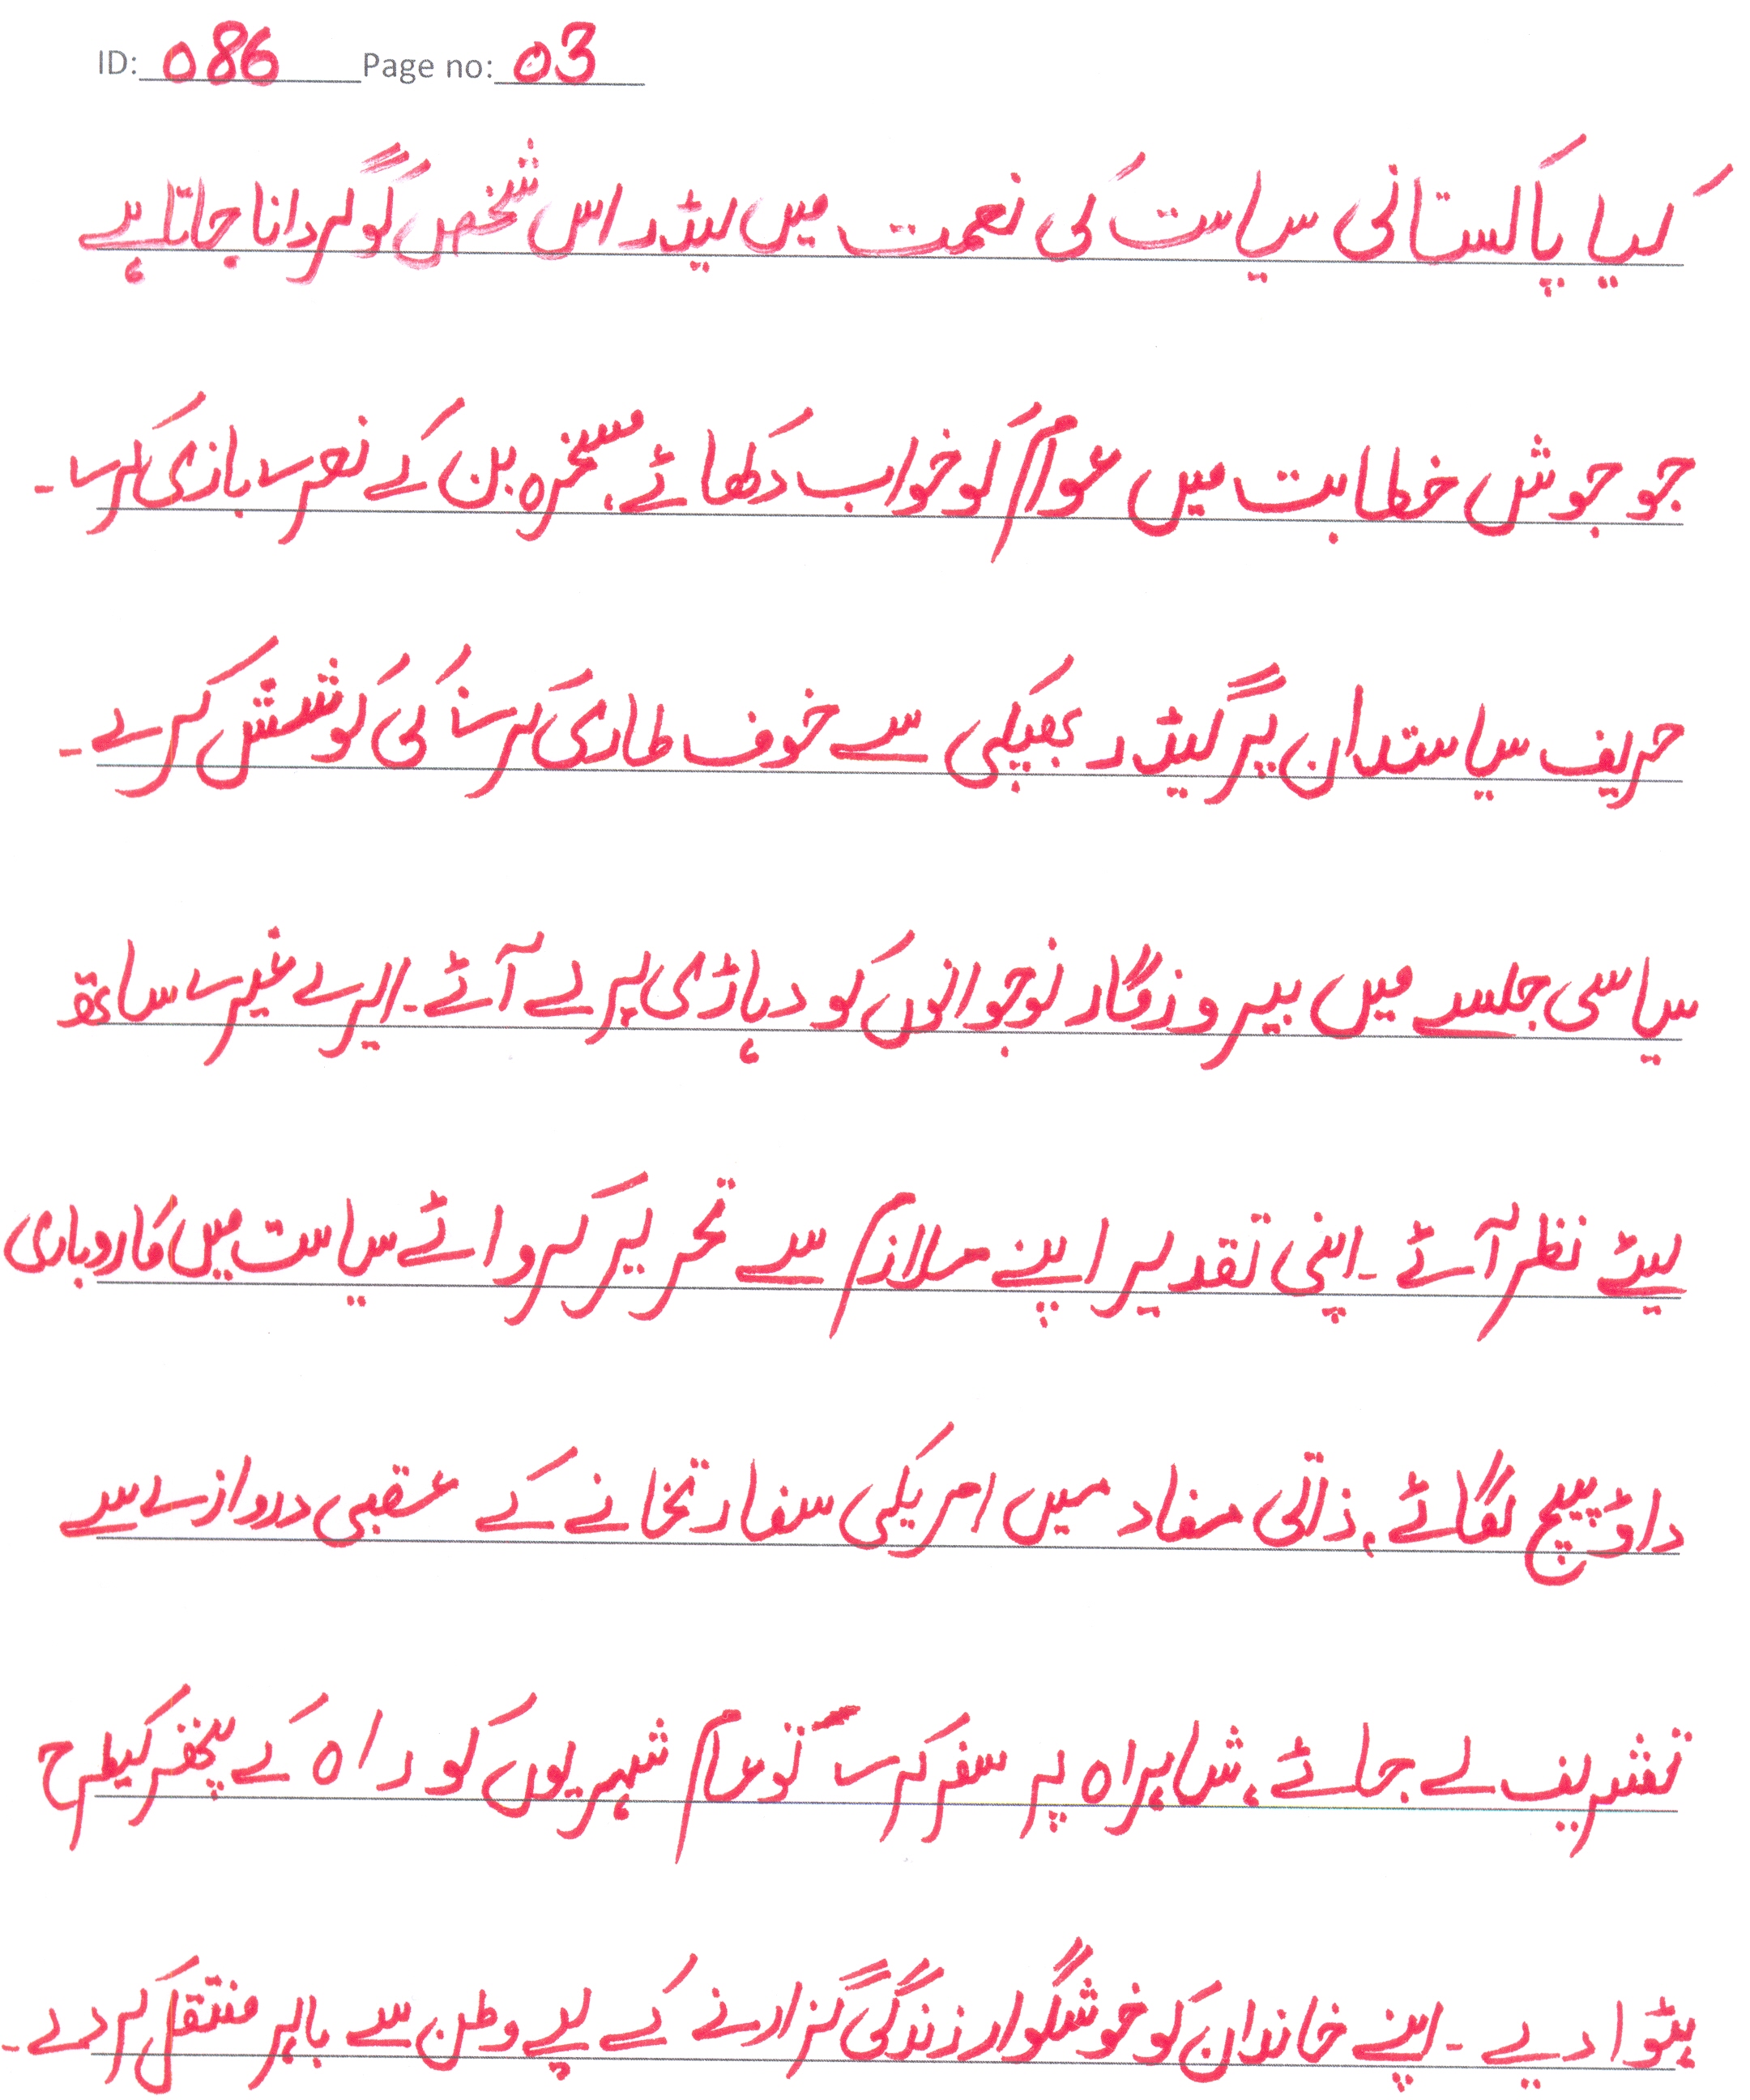 ID: 086 Page no: 03
کیا پاکستانی سیاست کی نعمت میں لیڈر اس شخص کو گردانا جاتا ہے
جو جوش خطابت میں عوام کو خواب دکھائے، مسخرہ بن کے نعرے بازی کرے۔
حریف سیاستدان پر گیڈر بھبکی سے خوف طاری کرنے کی کوشش کرے۔
سیاسی جلسے میں بیروزگار نوجوانوں کو دہاڑی پر لے آئے۔ ایرے غیرے ساتھ
لیے نظر آئے۔ اپنی تقدیر اپنے ملازم سے تحریر کروائے سیاست میں کاروباری
داؤ پیچ لگائے، ذاتی مفاد میں امریکی سفارتخانے کے عقبی دروازے سے
تشریف لے جائے، شاہراہ پر سفر کرے تو عام شہریوں کو راہ کے پتھر کیطرح
ہٹوا دیے۔ اپنے خاندان کو خوشگوار زندگی گزارنے کے لیے وطن سے باہر منتقل کر دے۔